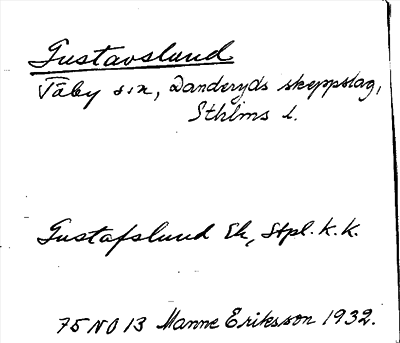 Gustavslund
Täby sn, Danderyds skeppslag,
Sthlms l.
Gustafslund Ek, Stpl. k. k.
75 NO 13 Manne Eriksson 1932.